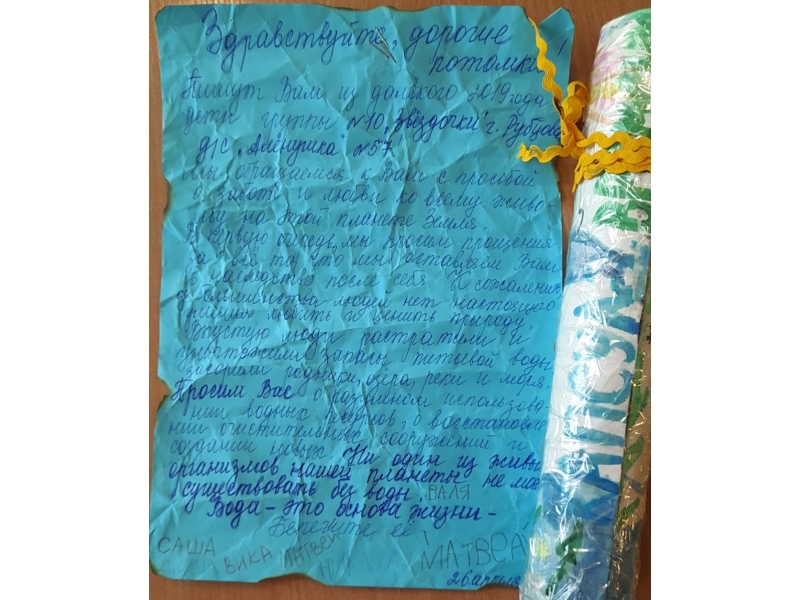 Здравствуйте, дорогие
потомки!
Пишут Вам из далёкого 2019 года
дети группы №10 „Звёздочки" г. Рубцовс
д/с „Алёнушка" №57.
Мы обращаемся к Вам с просьбой
о заботе и любви ко всему живо-
му на этой планете Земля.
В первую очередь, мы просим прощения
за всё то, что мы оставляем Вам
в наследство после себя. К сожалению
у большинства людей нет настоящего
любить и ценить природу
люди растратили и
уничтожили запасы питьевой воды
засорили родники, озёра, реки и моря.
Просим Вас о разумном использова-
нии водных ресурсов, о восстановле
нии очистительных сооружений и
создании новых. Ни один из живых
организмов нашей планеты не може
существовать без воды. ВАЛЯ
Вода - это основа жизни -
Берегите её!
САША ВИКА МАТВЕЙ МАТВЕЙ
26 апреля